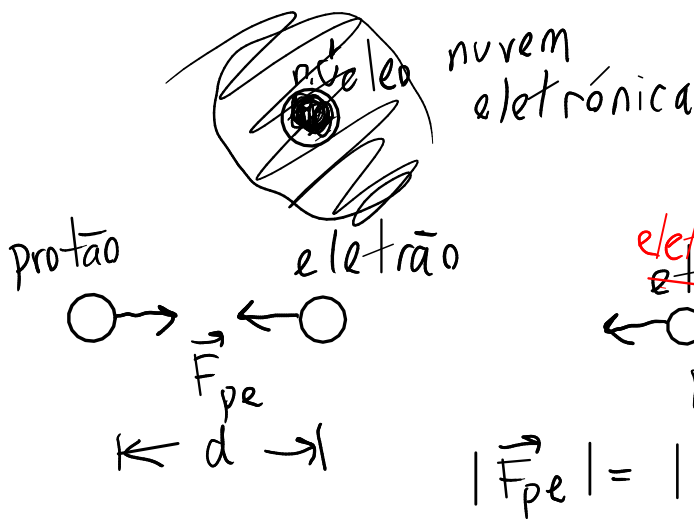 núcleo
nuvem
eletrónica
protão
eletrão
F pe
d
|F pe| = |